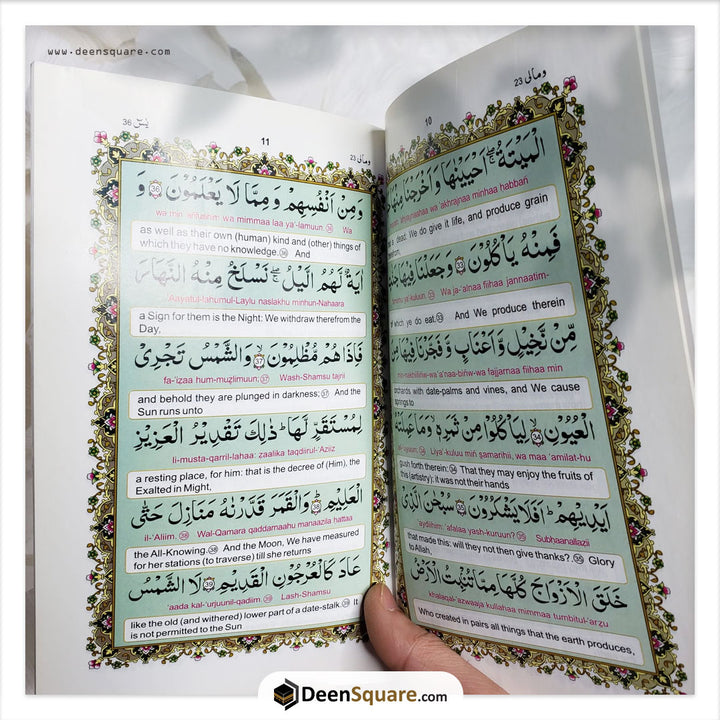 www.deensquare.com
10
ومالى 23
الْمَيْتَةُ ۖۚ اَحْيَيْنٰهَا وَاَخْرَجْنَا مِنْهَا
ahyaynaahaa wa'akhrajnaa minhaa habban
is a dead. We do give it life, and produce grain
فَمِنْهُ يَاْكُلُوْنَ ۝33 وَجَعَلْنَا فِيْهَا
ya'kuluun.33 Wa ja-'alnaa fiihaa jannaatim-
of which ye do eat.33 And We produce therein
مِّنْ نَّخِيْلٍ وَّاَعْنَابٍ وَّفَجَّرْنَا فِيْهَا مِنَ
wa fajjarnaa fiihaa min
orchards with date-palms and vines, and We cause springs to
الْعُيُوْنِ ۝34 لِيَاْكُلُوْا مِنْ ثَمَرِهٖ ۙ وَمَا عَمِلَتْهُ
Liya'kuluu min samarihii, wa maa 'amilat-hu
gush forth therein:34 That they may enjoy the fruits of this (artistry): it was not their hands
اَيْدِيْهِمْ ؕ اَفَلَا يَشْكُرُوْنَ ۝35 سُبْحٰنَ الَّذِيْ
aydiihim: 'afalaa yash-kuruun?35 Subhaanallazii
that made this: will they not then give thanks?.35 Glory to Allah,
خَلَقَ الْاَزْوَاجَ كُلَّهَا مِمَّا تُنْۢبِتُ الْاَرْضُ
khalaqal-'azwaaja kullahaa mimmaa tumbitul-'arzu
Who created in pairs all things that the earth produces,
يٰسٓ 36
11
ومالى 23
وَمِنْ اَنْفُسِهِمْ وَمِمَّا لَا يَعْلَمُوْنَ ۝36 وَ
wa min 'anfusihim wa mimmaa laa ya'-lamuun:36 Wa
as well as their own (human) kind and (other) things of which they have no knowledge.36 And
اٰيَةٌ لَّهُمُ الَّيْلُ ۖۚ نَسْلَخُ مِنْهُ النَّهَارَ
'Aayatul-lahumul-Laylu naslakhu minhun-Nahaara
a Sign for them is the Night: We withdraw therefrom the Day,
فَاِذَا هُمْ مُّظْلِمُوْنَ ۝37 وَالشَّمْسُ تَجْرِيْ
fa-'izaa hum-muzlimuun;37 Wash-Shamsu tajrii
and behold they are plunged in darkness;37 And the Sun runs unto
لِمُسْتَقَرٍّ لَّهَا ؕ ذٰلِكَ تَقْدِيْرُ الْعَزِيْزِ
li-musta-qarril-lahaa: zaalika taqdiirul-'Aziiz
a resting place, for him: that is the decree of (Him), the Exalted in Might,
الْعَلِيْمِ ۝38 وَالْقَمَرَ قَدَّرْنٰهُ مَنَازِلَ حَتّٰى
il-'Aliim.38 Wal-Qamara qaddarnaahu manaazila hattaa
the All-Knowing.38 And the Moon, We have measured for her stations (to traverse) till she returns
عَادَ كَالْعُرْجُوْنِ الْقَدِيْمِ ۝39 لَا الشَّمْسُ
'aada kal-'urjuunil-qadiim.39 Lash-Shamsu
like the old (and withered) lower part of a date-stalk.39 It is not permitted to the Sun
DeenSquare.com